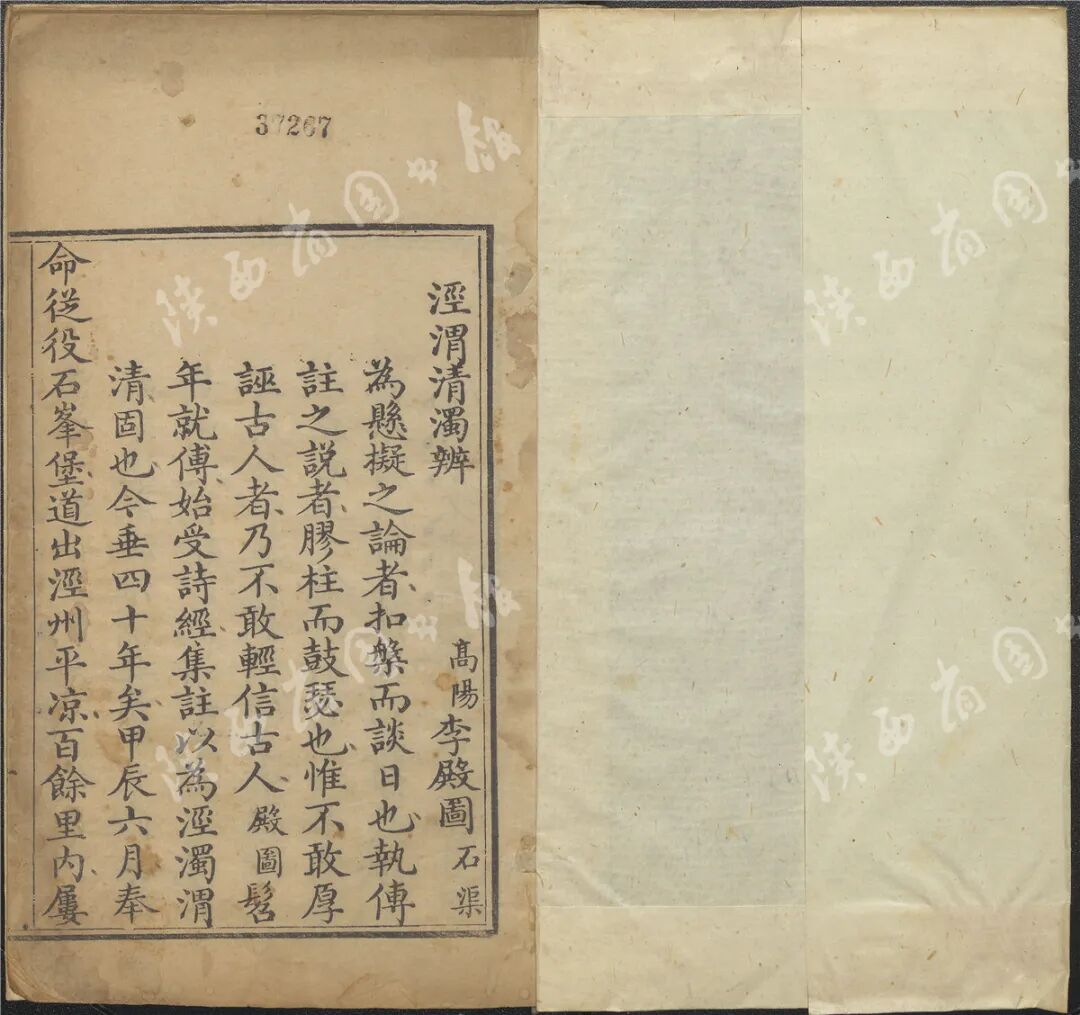 37267
涇渭清濁辨
高陽李殿圖石渠
為懸擬之論者扣槃而談日也執傳
註之説者膠柱而鼓瑟也惟不敢厚
誣古人者乃不敢輕信古人殿圖髫
年就傅始受詩經集註以為涇濁渭
清固也今垂四十年矣甲辰六月奉
命從役石峯堡道出涇州平凉百餘里内屢
陕西省图书馆
陕西省图书馆
陕西省图书馆
陕西省图书馆